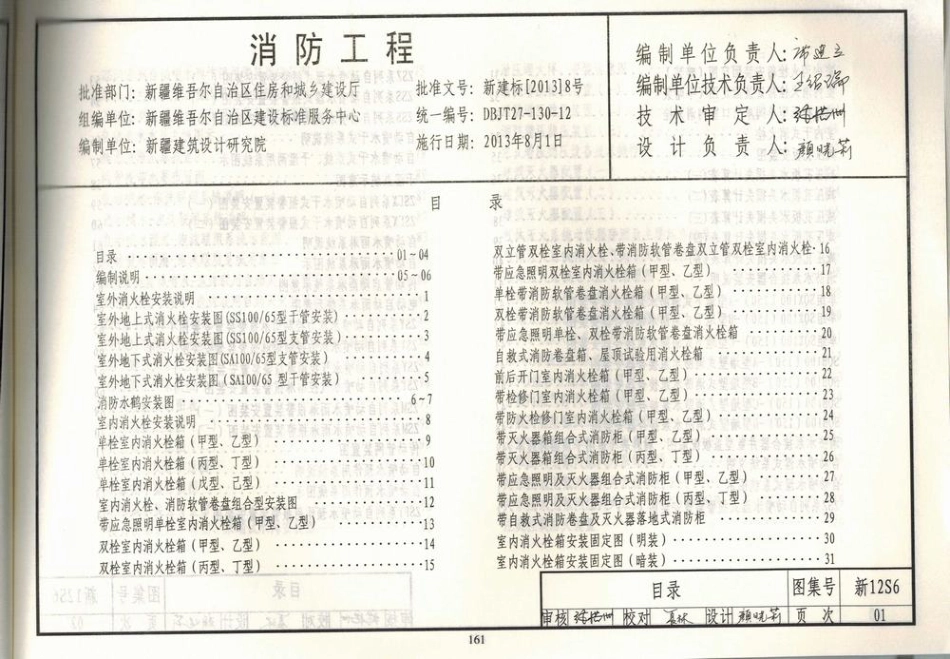 消防工程
批准部门: 新疆维吾尔自治区住房和城乡建设厅 批准文号: 新建标[2013]8号
组编单位: 新疆维吾尔自治区建设标准服务中心 统一编号: DBJT27-130-12
编制单位: 新疆建筑设计研究院 施行日期: 2013年8月1日
编制单位负责人:
编制单位技术负责人:
技术审定人:
设计负责人: 颜晓莉
目 录
目录 01~04
编制说明 05~06
室外消火栓安装说明 1
室外地上式消火栓安装图(SS100/65型干管安装) 2
室外地上式消火栓安装图(SS100/65型支管安装) 3
室外地下式消火栓安装图(SA100/65型支管安装) 4
室外地下式消火栓安装图(SA100/65 型干管安装) 5
消防水鹤安装图 6~7
室内消火栓安装说明 8
单栓室内消火栓箱(甲型、乙型) 9
单栓室内消火栓箱(丙型、丁型) 10
单栓室内消火栓箱(戊型、己型) 11
室内消火栓、消防软管卷盘组合型安装图 12
带应急照明单栓室内消火栓箱(甲型、乙型) 13
双栓室内消火栓箱(甲型、乙型) 14
双栓室内消火栓箱(丙型、丁型) 15
双立管双栓室内消火栓、带消防软管卷盘双立管双栓室内消火栓 16
带应急照明双栓室内消火栓箱(甲型、乙型) 17
单栓带消防软管卷盘消火栓箱(甲型、乙型) 18
双栓带消防软管卷盘消火栓箱(甲型、乙型) 19
带应急照明单栓、双栓带消防软管卷盘消火栓箱 20
自救式消防卷盘箱、屋顶试验用消火栓箱 21
前后开门室内消火栓箱(甲型、乙型) 22
带检修门室内消火栓箱(甲型、乙型) 23
带防火检修门室内消火栓箱(甲型、乙型) 24
带灭火器箱组合式消防柜(甲型、乙型) 25
带灭火器箱组合式消防柜(丙型、丁型) 26
带应急照明及灭火器组合式消防柜(甲型、乙型) 27
带应急照明及灭火器组合式消防柜(丙型、丁型) 28
带自救式消防卷盘及灭火器落地式消防柜 29
室内消火栓箱安装固定图(明装) 30
室内消火栓箱安装固定图(暗装) 31
目录 图集号 新12S6
审核 校对 设计 颜晓莉 页次 01
161